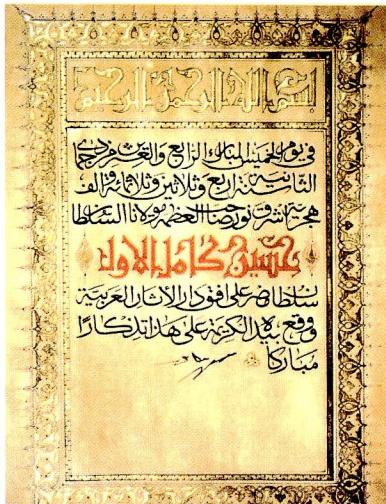 بسم الله الرحمن الرحيم
في يوم الخميس المبارك الرابع والعشرين من جمادى
الثانية سنة أربع وثلاثين وثلاثمائة وألف
هجرية أشرق نور صاحب العظمة مولانا السلطان
حسين كامل الأول
سلطان مصر على أفق دار الآثار العربية
ووقع بيده الكريمة على هذا تذكارًا
مباركًا